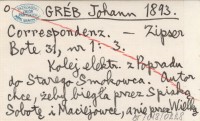 GRÉB Johann 1893.
Correspondenz. — Zipser
Bote 31, nr 1: 3.
Kolej elektr. z Popradu
do Starego Smokowca. Autor
chce, żeby biegła przez Spiską
Sobotę i Maciejowce, a nie przez Wielką